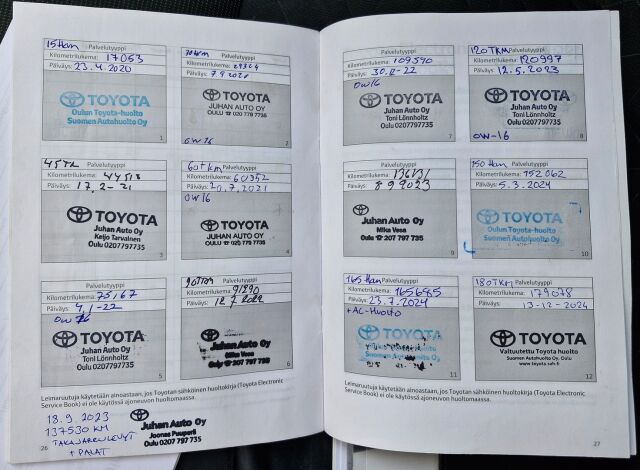 15 tkm Palvelutyyppi
Kilometrilukema: 17053
Päiväys: 23.4.2020
TOYOTA
Oulun Toyota-huolto
Suomen Autohuolto Oy
1
Palvelutyyppi
Kilometrilukema:
Päiväys: 7.9.2020
TOYOTA
JUHAN AUTO OY
OULU ☎ 020 779 7735
OW16
2
45TK Palvelutyyppi
Kilometrilukema:
Päiväys: 17,2-21
TOYOTA
Juhan Auto Oy
Keijo Tarvainen
Oulu 0207797735
3
60TKM Palvelutyyppi
Kilometrilukema: 60352
Päiväys: 20.7.2021
OW16
TOYOTA
JUHAN AUTO OY
OULU ☎ 020 779 7735
4
Palvelutyyppi
Kilometrilukema: 75167
Päiväys: 4,1-22
OW
TOYOTA
Juhan Auto Oy
Toni Lönnholtz
Oulu 0207797735
5
90TKM Palvelutyyppi
Kilometrilukema:
Päiväys:
Juhan Auto Oy
Mika Vesa
Oulu ☎ 207 797 735
6
Leimaruutuja käytetään ainoastaan, jos Toyotan sähköinen huoltokirja (Toyota Electronic
Service Book) ei ole käytössä ajoneuvon huoltomaassa.
18.9.2023
137530 KM
TAKAJARRULEVYT
+ PALAT
Juhan Auto Oy
Joonas Puuperä
Oulu 0207 797 735
26
Palvelutyyppi
Kilometrilukema: 109590
Päiväys:
OW16
TOYOTA
Juhan Auto Oy
Toni Lönnholtz
Oulu 0207797735
7
120TKM Palvelutyyppi
Kilometrilukema: 120997
Päiväys: 12.5.2023
TOYOTA
Juhan Auto Oy
Toni Lönnholtz
Oulu 0207797735
OW-16
8
Palvelutyyppi
Kilometrilukema:
Päiväys: 8 9 2023
Juhan Auto Oy
Mika Vesa
Oulu ☎ 207 797 735
9
150 tkm Palvelutyyppi
Kilometrilukema: 152062
Päiväys: 5.3.2024
TOYOTA
Oulun Toyota-huolto
Suomen Autohuolto Oy
10
165 tkm Palvelutyyppi
Kilometrilukema: 165685
Päiväys: 23.7.2024
+AC-Huolto
TOYOTA
11
180TKM Palvelutyyppi
Kilometrilukema: 179078
Päiväys: 13-12-2024
TOYOTA
Valtuutettu Toyota huolto
Suomen Autohuolto Oy, Oulu
12
Leimaruutuja käytetään ainoastaan, jos Toyotan sähköinen huoltokirja (Toyota Electronic
Service Book) ei ole käytössä ajoneuvon huoltomaassa.
27